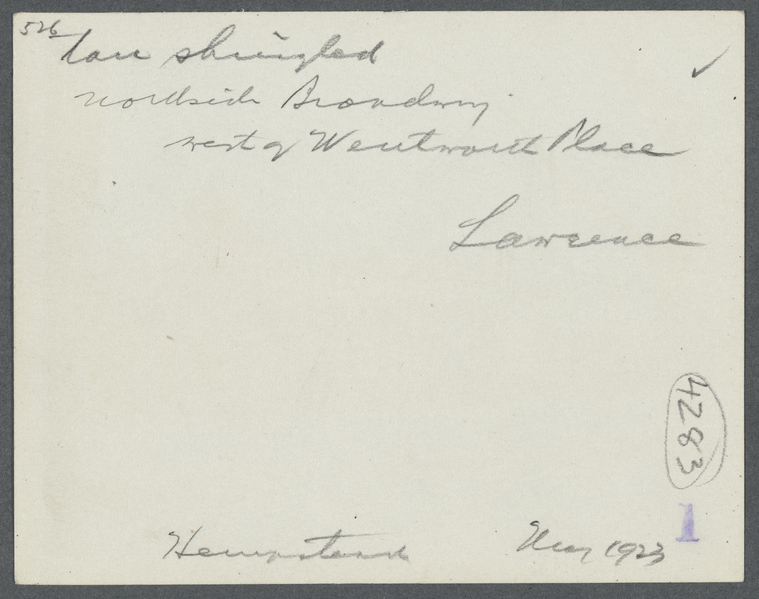 526
tan shingled
northside Broadway
west of Wentworth Place
Lawrence
4283
1
Hempstead May 1923